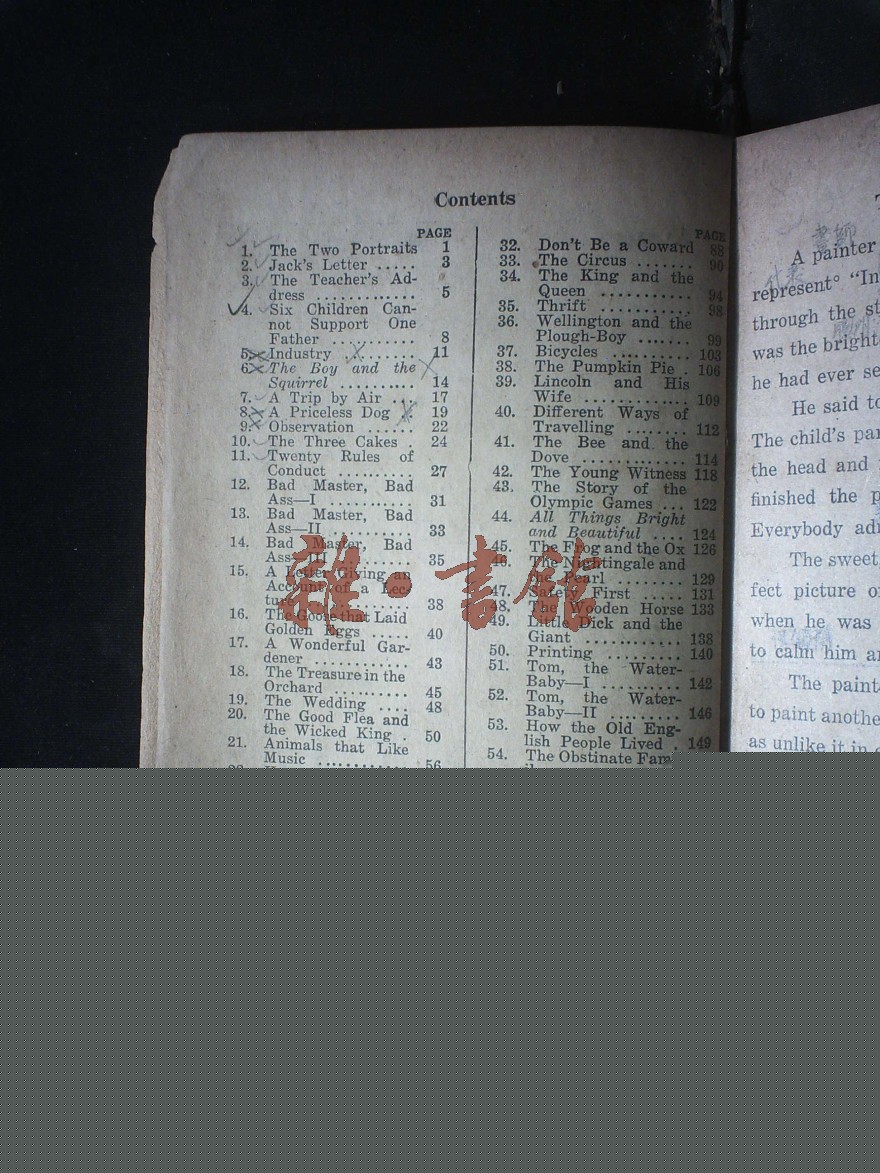 Contents
PAGE
1. The Two Portraits 1
2. Jack's Letter ..... 3
3. The Teacher's Ad-
dress ............. 5
4. Six Children Can-
not Support One
Father .......... 8
5. Industry ......... 11
6. The Boy and the
Squirrel .......... 14
7. A Trip by Air ... 17
8. A Priceless Dog .. 19
9. Observation ...... 22
10. The Three Cakes . 24
11. Twenty Rules of
Conduct .......... 27
12. Bad Master, Bad
Ass—I ........... 31
13. Bad Master, Bad
Ass—II .......... 33
14. Bad Master, Bad
Ass—III ......... 35
15. A Letter Giving an
Account of a Lec-
ture ............. 38
16. The Goose that Laid
Golden Eggs ..... 40
17. A Wonderful Gar-
dener ............ 43
18. The Treasure in the
Orchard .......... 45
19. The Wedding .... 48
20. The Good Flea and
the Wicked King . 50
21. Animals that Like
Music ............ 56
PAGE
32. Don't Be a Coward 88
33. The Circus ....... 90
34. The King and the
Queen ........... 94
35. Thrift ........... 98
36. Wellington and the
Plough-Boy ....... 99
37. Bicycles .......... 103
38. The Pumpkin Pie . 106
39. Lincoln and His
Wife ............. 109
40. Different Ways of
Travelling ........ 112
41. The Bee and the
Dove ............. 114
42. The Young Witness 118
43. The Story of the
Olympic Games ... 122
44. All Things Bright
and Beautiful .... 124
45. The Frog and the Ox 126
46. The Nightingale and
the Pearl ........ 129
47. Safety First ..... 131
48. The Wooden Horse 133
49. Little Dick and the
Giant ............ 138
50. Printing ......... 140
51. Tom, the Water-
Baby—I .......... 142
52. Tom, the Water-
Baby—II ......... 146
53. How the Old Eng-
lish People Lived . 149
54. The Obstinate Fam
雜·書館
A painter
represent° "In
through the
was the bright
he had ever se
He said to
The child's
the head and
finished the
Everybody
The sweet
fect picture
when he was
to calm him
The paint
to paint anothe
as unlike it in